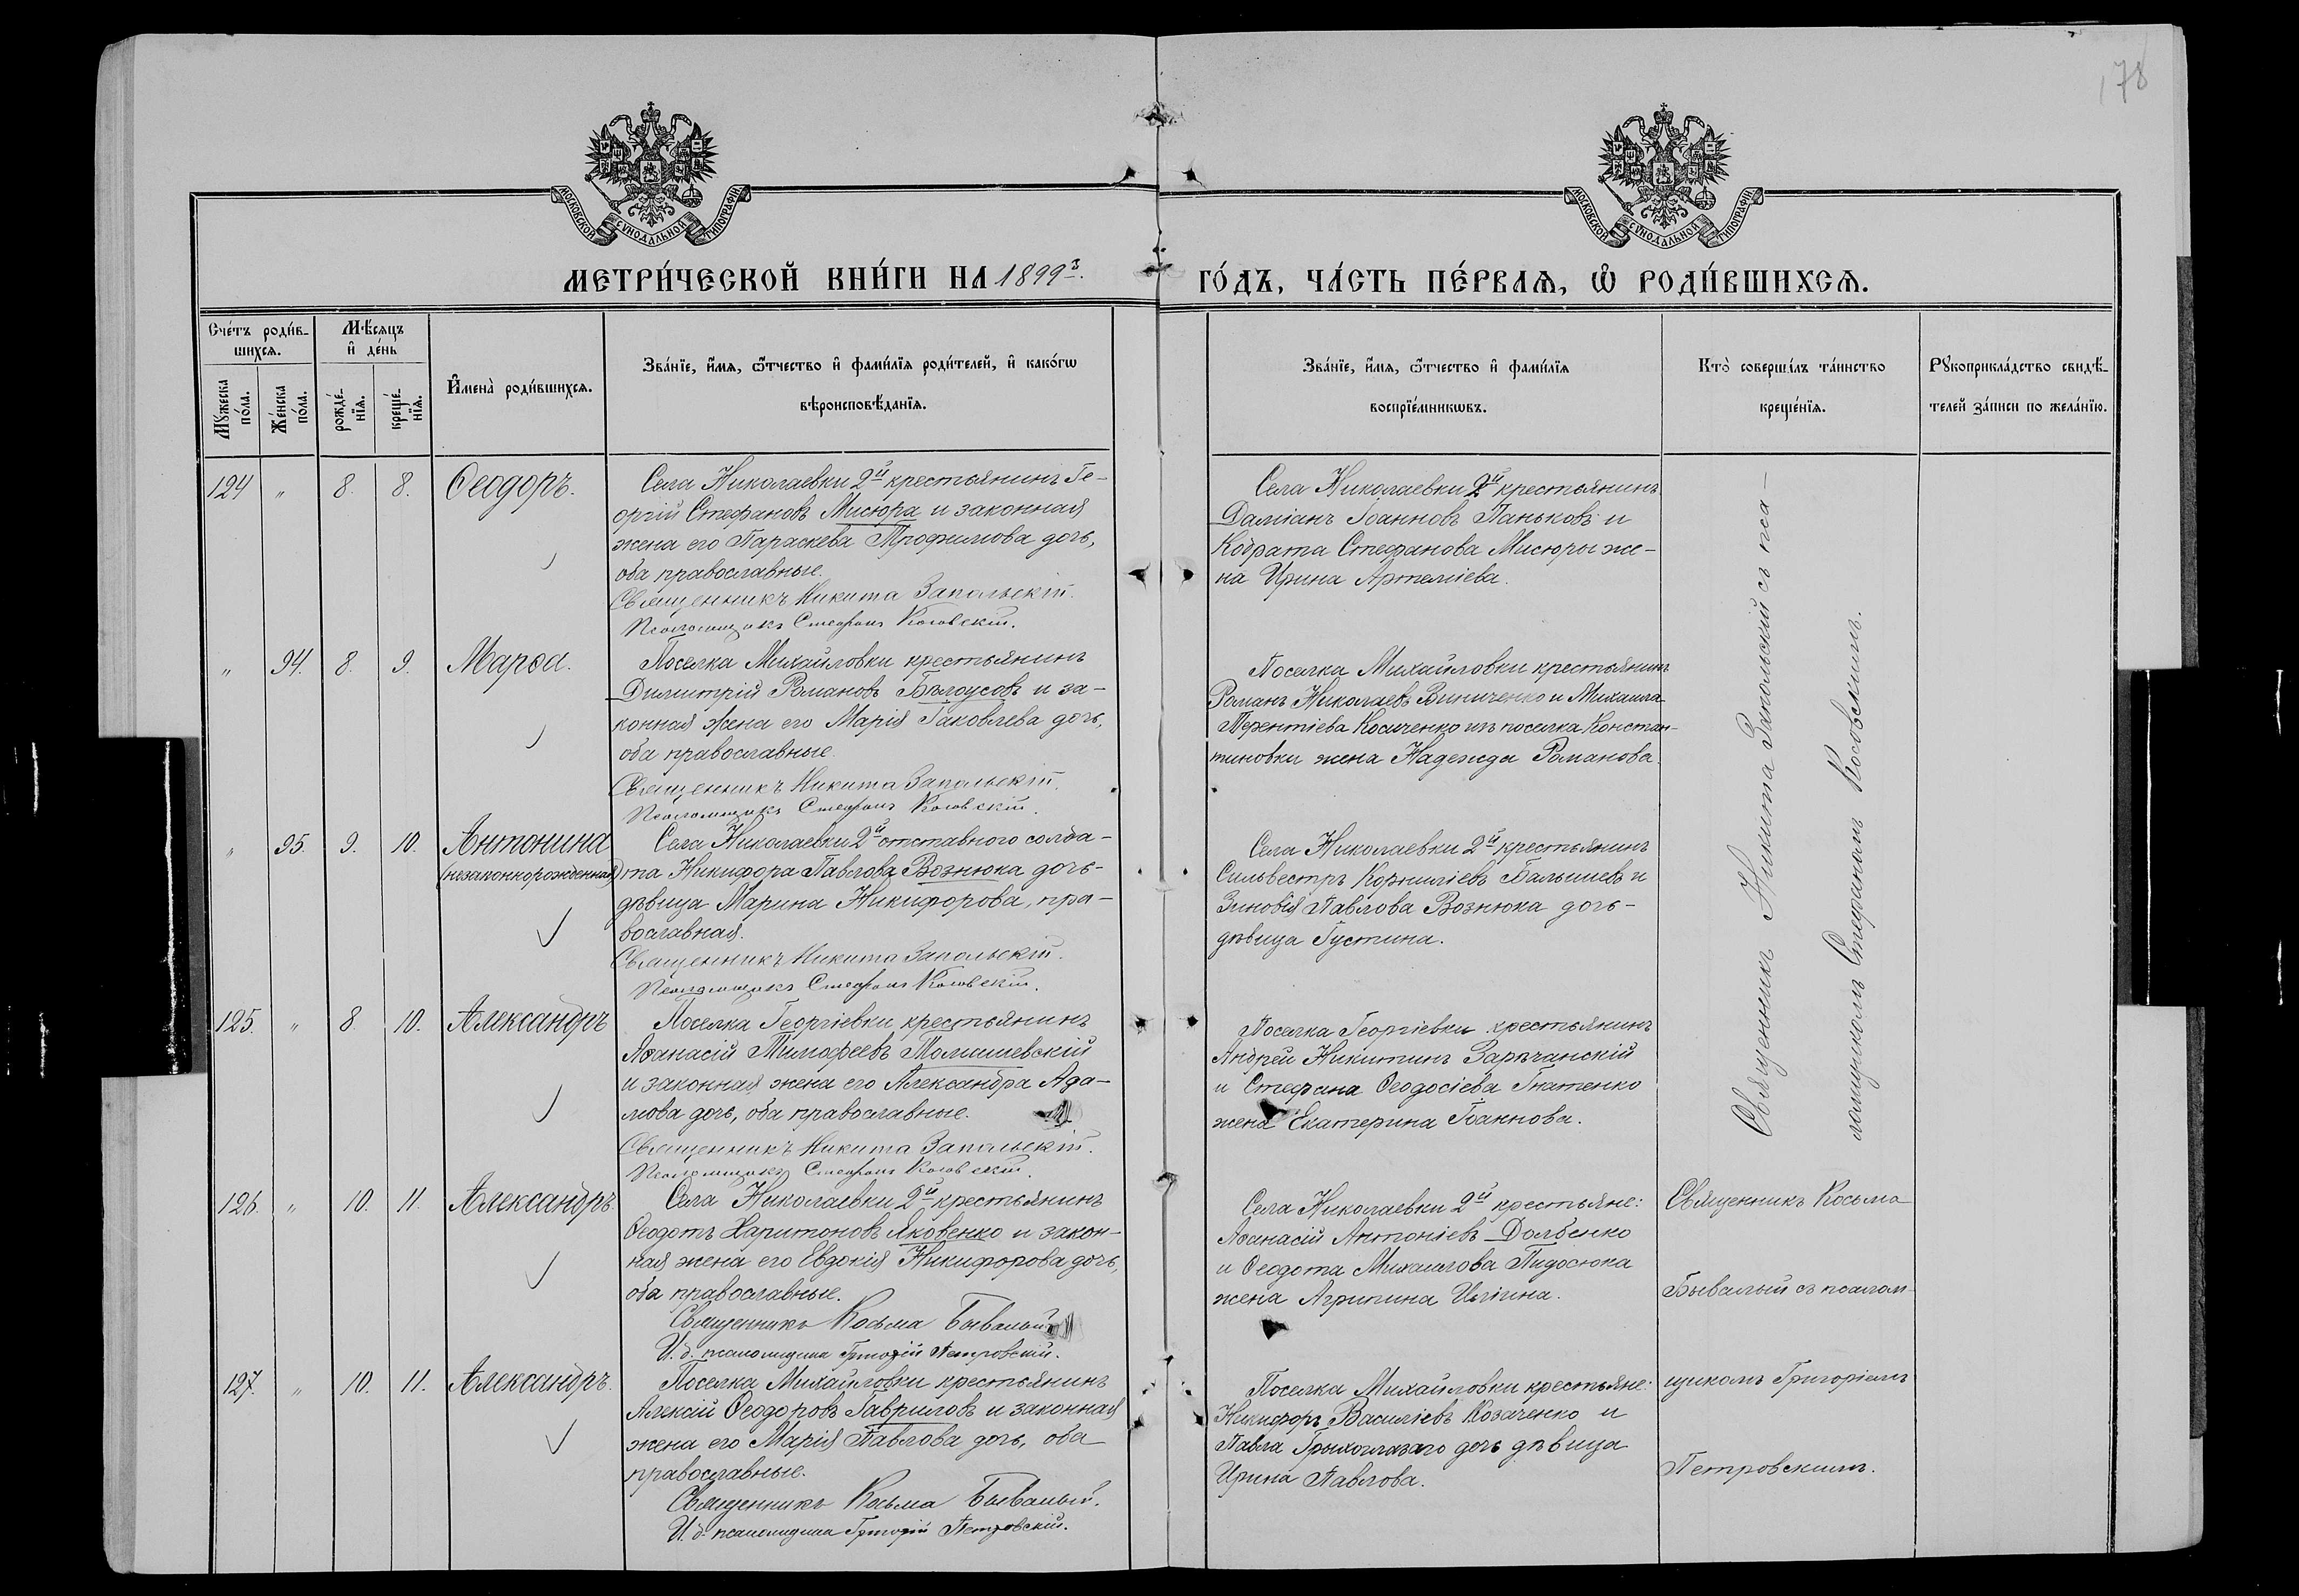 178
МОСКОВСКОЙ СѴНОДАЛЬНОЙ ТИПОГРАФІИ
МОСКОВСКОЙ СѴНОДАЛЬНОЙ ТИПОГРАФІИ
МЕТРИ́ЧЕСКОЙ КНИ́ГИ НА 1899й.
ГО́ДЪ, ЧА́СТЬ ПЕ́РВАѦ, Ѽ РОДИ́ВШИХСѦ.
Сче́тъ роди́в-
шихсѧ.
Мѣ́сѧцъ
и҆ де́нь
Мꙋ́жеска
по́ла.
Же́нска
по́ла.
рожде́-
нїѧ.
креще́-
нїѧ.
И҆мена̀ роди́вшихсѧ.
Зва́нїе, и҆́мѧ, ѻ҆́тчество и҆ фами́лїѧ роди́телей, и҆ како́гѡ
вѣроисповѣ́данїѧ.
Зва́нїе, и҆́мѧ, ѻ҆́тчество и҆ фами́лїѧ
воспрїе́мникѡвъ.
Кто̀ соверша́лъ та́инство
креще́нїѧ.
Рꙋкоприкла́дство свидѣ́-
телей за́писи по жела́нїю.
124 " 8. 8. Ѳеодоръ.
Села Николаевки 2й крестьянинъ Ге-
оргій Стефановъ Мисюра и законная
жена его Параскева Трофимова дочь,
оба православные.
Священникъ Никита Запольскій.
Псаломщикъ Стефанъ Косовскій.
Села Николаевки 2й крестьянинъ
Даміанъ Іоанновъ Паньковъ и
Кодрата Стефанова Мисюры же-
на Ирина Артеміева.
" 94. 8. 9. Марѳа.
Поселка Михайловки крестьянинъ
Димитрій Романовъ Бѣлоусовъ и за-
конная жена его Марія Іаковлева дочь,
оба православные.
Священникъ Никита Запольскій.
Псаломщикъ Стефанъ Косовскій.
Поселка Михайловки крестьянинъ
Романъ Николаевъ Виниченко и Михаила
Терентіева Косиченко изъ поселка Констан-
тиновки жена Надежда Романова.
" 95. 9. 10. Антонина
(незаконнорожденная)
Села Николаевки 2й отставного солда-
та Никифора Павлова Вознюка дочь-
дѣвица Марина Никифорова, пра-
вославная.
Священникъ Никита Запольскій.
Псаломщикъ Стефанъ Косовскій.
Села Николаевки 2й крестьянинъ
Сильвестръ Корниліевъ Балышевъ и
Зиновія Павлова Вознюка дочь-
дѣвица Іустина.
125. " 8. 10. Александръ
Поселка Георгіевки крестьянинъ
Аѳанасій Тимофеевъ Томашевскій
и законная жена его Александра Ада-
мова дочь, оба православные.
Священникъ Никита Запольскій.
Псаломщикъ Стефанъ Косовскій.
Поселка Георгіевки крестьянинъ
Андрей Никитинъ Зарѣчанскій
и Стефана Ѳеодосіева Гнатенко
жена Екатерина Іоаннова.
Священникъ Никита Запольскій съ пса-
ломщикомъ Стефаномъ Косовскимъ.
126. " 10. 11. Александръ.
Села Николаевки 2й крестьянинъ
Ѳеодотъ Харитоновъ Яковенко и закон-
ная жена его Евдокія Никифорова дочь,
оба православные.
Священникъ Косьма Бывалый
И. д. псаломщика Григорій Петровскій.
Села Николаевки 2й крестьяне:
Аѳанасій Антоніевъ Долбенко
и Ѳеодота Михаилова Пидосюка
жена Агрипина Иліина.
127. " 10. 11. Александръ.
Поселка Михайловки крестьянинъ
Алексій Ѳеодоровъ Гавриловъ и законная
жена его Марія Павлова дочь, оба
православные.
Священникъ Косьма Бывалый.
И. д. псаломщика Григорій Петровскій.
Поселка Михайловки крестьяне:
Никифоръ Василіевъ Козаченко и
Павла дочь дѣвица
Ирина Павлова.
Священникъ Косьма
Бывалый съ псалом-
щикомъ Григоріемъ
Петровскимъ.